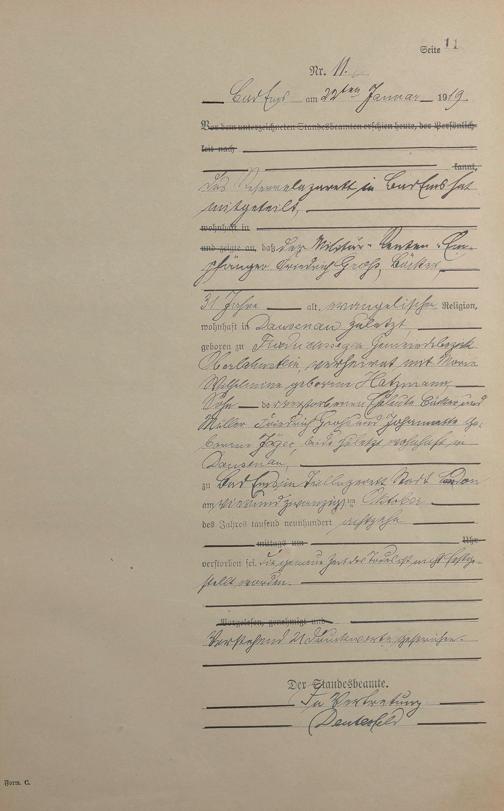 Seite 11
Nr. 11.
Bad Ems am 22ten Januar 1919.
Vor dem unterzeichneten Standesbeamten erschien heute, der Persönlich-
keit nach
kannt,
Das Reservelazarett in Bad Ems hat
mitgeteilt,
wohnhaft in
und zeigte an, daß der Militär-Renten-Em-
pfänger Friedrich Groß, Bäcker,
31 Jahre alt, evangelischer Religion,
wohnhaft in Dausenau zuletzt,
geboren zu Gemeindebezirk
Oberlahnstein, verheiratet mit Marie
Wilhelmine geborene Hatzmann,
Sohn der verstorbenen Eheleute Bäcker und
Müller Friedrich Groß und Johannette ge-
borene Jäger, beide zuletzt wohnhaft in
Dausenau,
zu Bad Ems im Teillazarett Stadt London
am vierundzwanzigsten Oktober
des Jahres tausend neunhundert achtzehn
mittags um Uhr
verstorben sei. Die genaue Zeit des Todes ist nicht festge-
stellt worden.
Vorgelesen, genehmigt und
Vorstehend 21 Druckworte gestrichen.
Der Standesbeamte.
In Vertretung
Form. C.